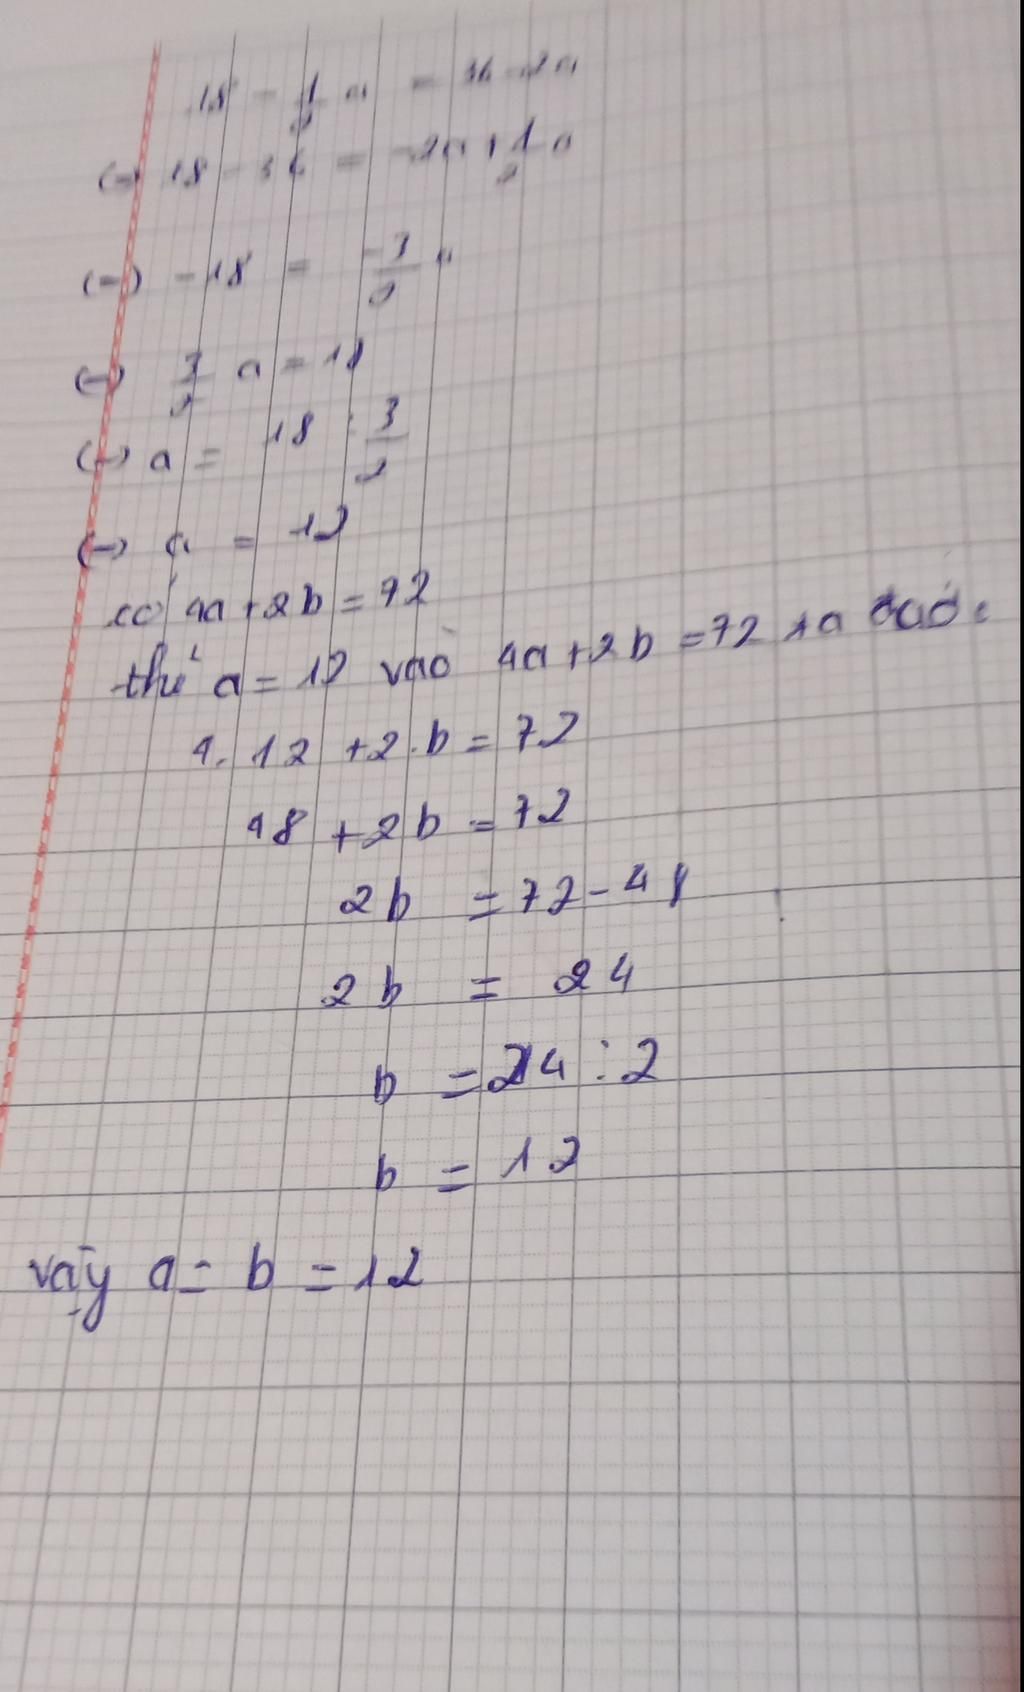 18 - 1/2 a = 36 - 2a
(=) 18 - 36 = -2a + 1/2 a
(=) - 18 = -3/2 a
(=) 3/2 a = 18
(=) a = 18 : 3/2
(=) a = 12
có 4a + 2b = 72
thế a = 12 vào 4a + 2b = 72 ta được
4. 12 + 2.b = 72
48 + 2b = 72
2b = 72 - 48
2b = 24
b = 24 : 2
b = 12
vậy a = b = 12